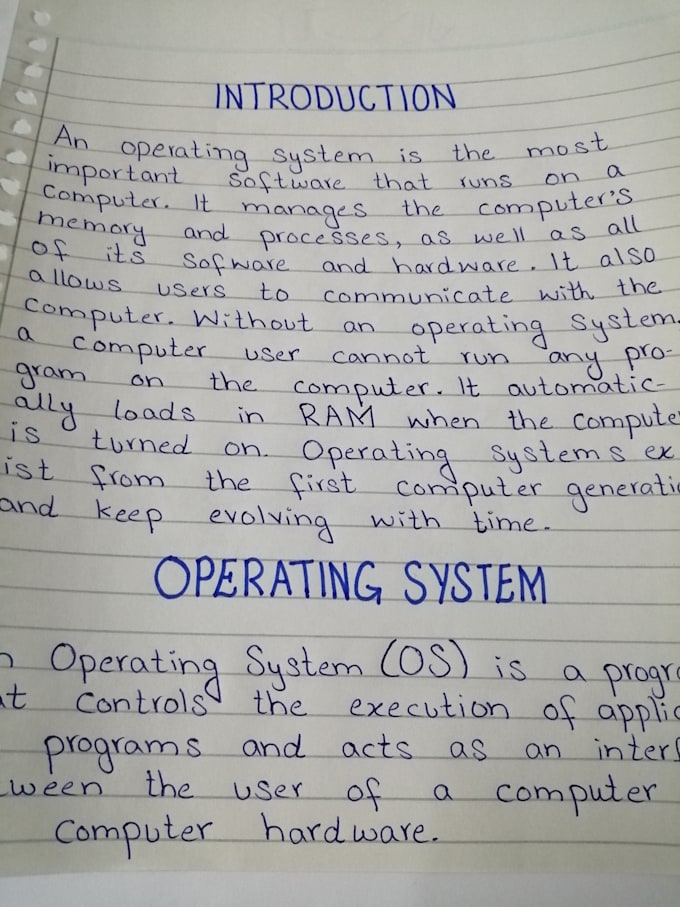 INTRODUCTION
An operating system is the most
important software that runs on a
computer. It manages the computer's
memory and processes, as well as all
of its sofware and hardware. It also
allows users to communicate with the
computer. Without an operating system.
a computer user cannot run any pro-
gram on the computer. It automatic-
ally loads in RAM when the compute
is turned on. Operating systems ex
ist from the first computer generati
and keep evolving with time.
OPERATING SYSTEM
n Operating System (OS) is a progr
at controls the execution of applic
programs and acts as an interf
ween the user of a computer
computer hardware.